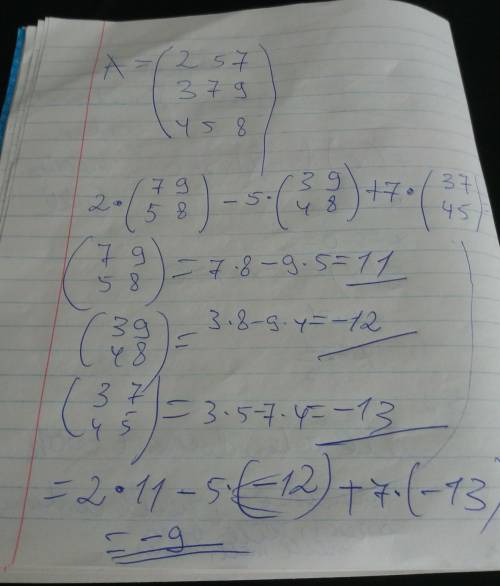 A = (2 5 7
3 7 9
4 5 8)
2·(7 9 5 8) - 5·(3 9 4 8) + 7·(3 7 4 5) =
(7 9 5 8) = 7·8-9·5=11
(3 9 4 8) = 3·8-9·4=-12
(3 7 4 5) = 3·5-7·4=-13
= 2·11-5·(-12)+7·(-13)
= -9